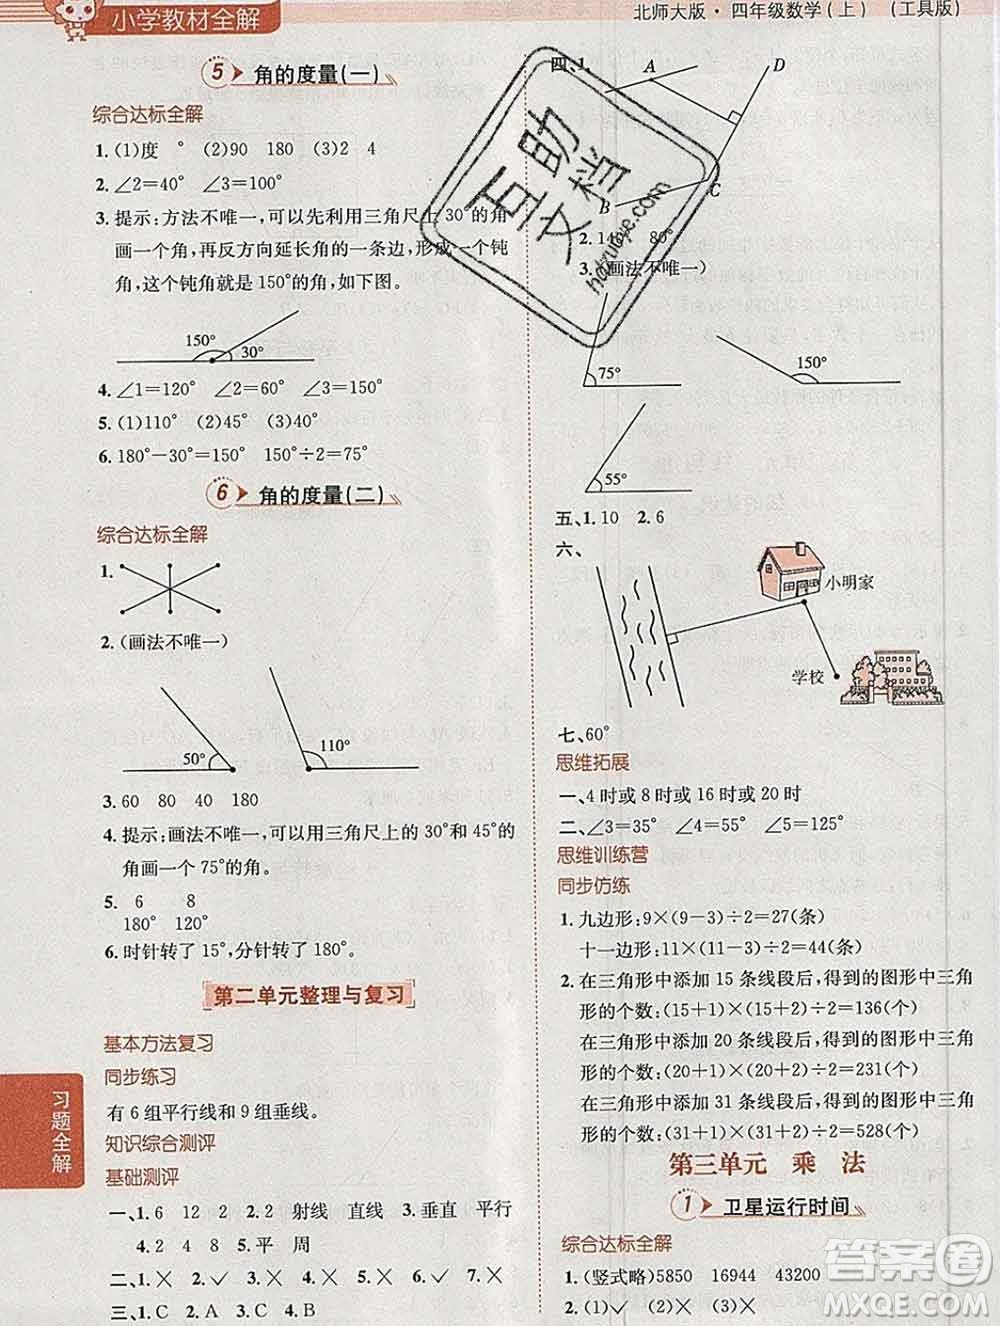 小学教材全解
北师大版·四年级数学(上) (工具版)
5 角的度量(一)
综合达标全解
1. (1)度 ° (2)90 180 (3)2 4
2. ∠2=40° ∠3=100°
3. 提示:方法不唯一,可以先利用三角尺上 30°的角
画一个角,再反方向延长角的一条边,形成一个钝
角,这个钝角就是 150°的角,如下图。
150° 30°
4. ∠1=120° ∠2=60° ∠3=150°
5. (1)110° (2)45° (3)40°
6. 180°-30°=150° 150°÷2=75°
6 角的度量(二)
综合达标全解
1.
2. (画法不唯一)
50° 110°
3. 60 80 40 180
4. 提示:画法不唯一,可以用三角尺上的 30°和 45°的
角画一个 75°的角。
5. 6 8
180° 120°
6. 时针转了 15°,分针转了 180°。
第二单元整理与复习
基本方法复习
同步练习
有 6 组平行线和 9 组垂线。
知识综合测评
基础测评
一、1. 6 12 2 2. 2 射线 直线 3. 垂直 平行
4. 2 48 5. 平 周
二、1. ✓ 2. ✓ 3. × 4. ✓ 5. ×
三、1. C 2. A 3. C 4. B
习题全解
四、1.
A D
B C
2. 80°
3. (画法不唯一)
75° 150°
55°
五、1. 10 2. 6
六、
小明家
学校
七、60°
思维拓展
一、4 时或 8 时或 16 时或 20 时
二、∠3=35° ∠4=55° ∠5=125°
思维训练营
同步仿练
1. 九边形:9×(9-3)÷2=27(条)
十一边形:11×(11-3)÷2=44(条)
2. 在三角形中添加 15 条线段后,得到的图形中三角
形的个数:(15+1)×(15+2)÷2=136(个)
在三角形中添加 20 条线段后,得到的图形中三角
形的个数:(20+1)×(20+2)÷2=231(个)
在三角形中添加 31 条线段后,得到的图形中三角
形的个数:(31+1)×(31+2)÷2=528(个)
第三单元 乘 法
1 卫星运行时间
综合达标全解
1. (竖式略)5850 16944 43200
2. (1)✓ (2)× (3)×
互助文档
hdzuoye.com
答案圈
MXQE.COM